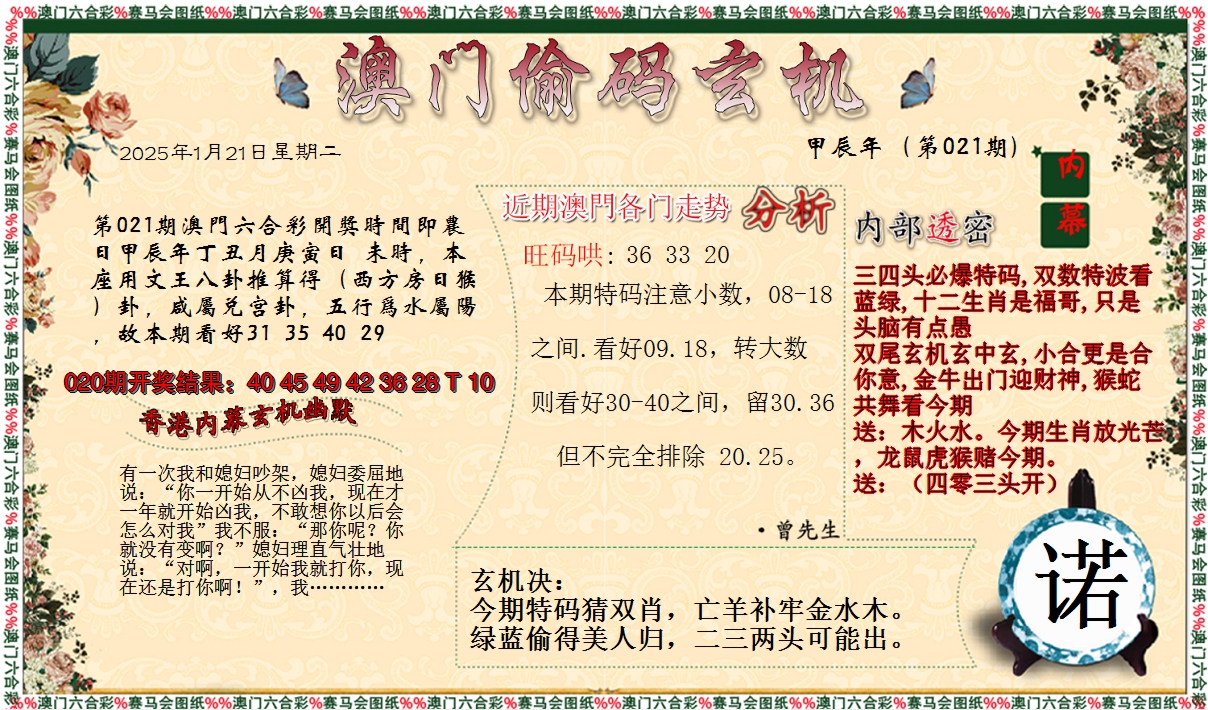 %%澳门六合彩%赛马会图纸%%澳门六合彩%赛马会图纸%%澳门六合彩%赛马会图纸%%澳门六合彩%赛马会图纸%%澳门六合彩%赛马会图纸%%澳门六合彩%赛马会图纸%%澳门六合彩%赛马会图纸%%
澳门偷码玄机
2025年1月21日星期二
甲辰年（第021期）
第021期澳門六合彩開獎時間即農
日甲辰年丁丑月庚寅日 未時，本
座用文王八卦推算得（西方房日猴
）卦，咸屬兑宫卦，五行爲水屬陽
，故本期看好31 35 40 29
020期开奖结果：40 45 49 42 36 28 T 10
香港内幕玄机幽默
有一次我和媳妇吵架，媳妇委屈地
说：“你一开始从不凶我，现在才
一年就开始凶我，不敢想你以后会
怎么对我”我不服：“那你呢？你
就没有变啊？”媳妇理直气壮地
说：“对啊，一开始我就打你，现
在还是打你啊！”，我…………
近期澳門各门走势 分析
旺码哄: 36 33 20
本期特码注意小数，08-18
之间.看好09.18，转大数
则看好30-40之间，留30.36
但不完全排除 20.25。
·曾先生
内幕
内部透密
三四头必爆特码,双数特波看
蓝绿,十二生肖是福哥,只是
头脑有点愚
双尾玄机玄中玄,小合更是合
你意,金牛出门迎财神,猴蛇
共舞看今期
送：木火水。今期生肖放光芒
，龙鼠虎猴赌今期。
送：（四零三头开）
玄机决：
今期特码猜双肖，亡羊补牢金水木。
绿蓝偷得美人归，二三两头可能出。
诺
%%澳门六合彩%赛马会图纸%%澳门六合彩%赛马会图纸%%澳门六合彩%赛马会图纸%%澳门六合彩%赛马会图纸%%澳门六合彩%赛马会图纸%%澳门六合彩%赛马会图纸%%澳门六合彩%赛马会图纸%%